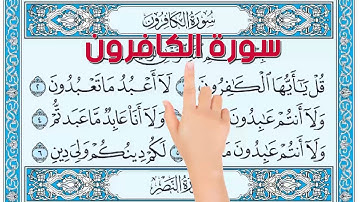 سُورَةُ الكَافِرُونَ
سورة الكافرون
قُلْ يَٰٓأَيُّهَا ٱلْكَٰفِرُونَ لَآ أَعْبُدُ مَا تَعْبُدُونَ ٢
وَلَآ أَنتُمْ عَٰبِدُونَ وَلَآ أَنَا۠ عَابِدٌ مَّا عَبَدتُّمْ ٤
وَلَآ أَنتُمْ عَٰبِدُونَ لَكُمْ دِينُكُمْ وَلِىَ دِينِ ٦
سُورَةُ النَّصْرِ